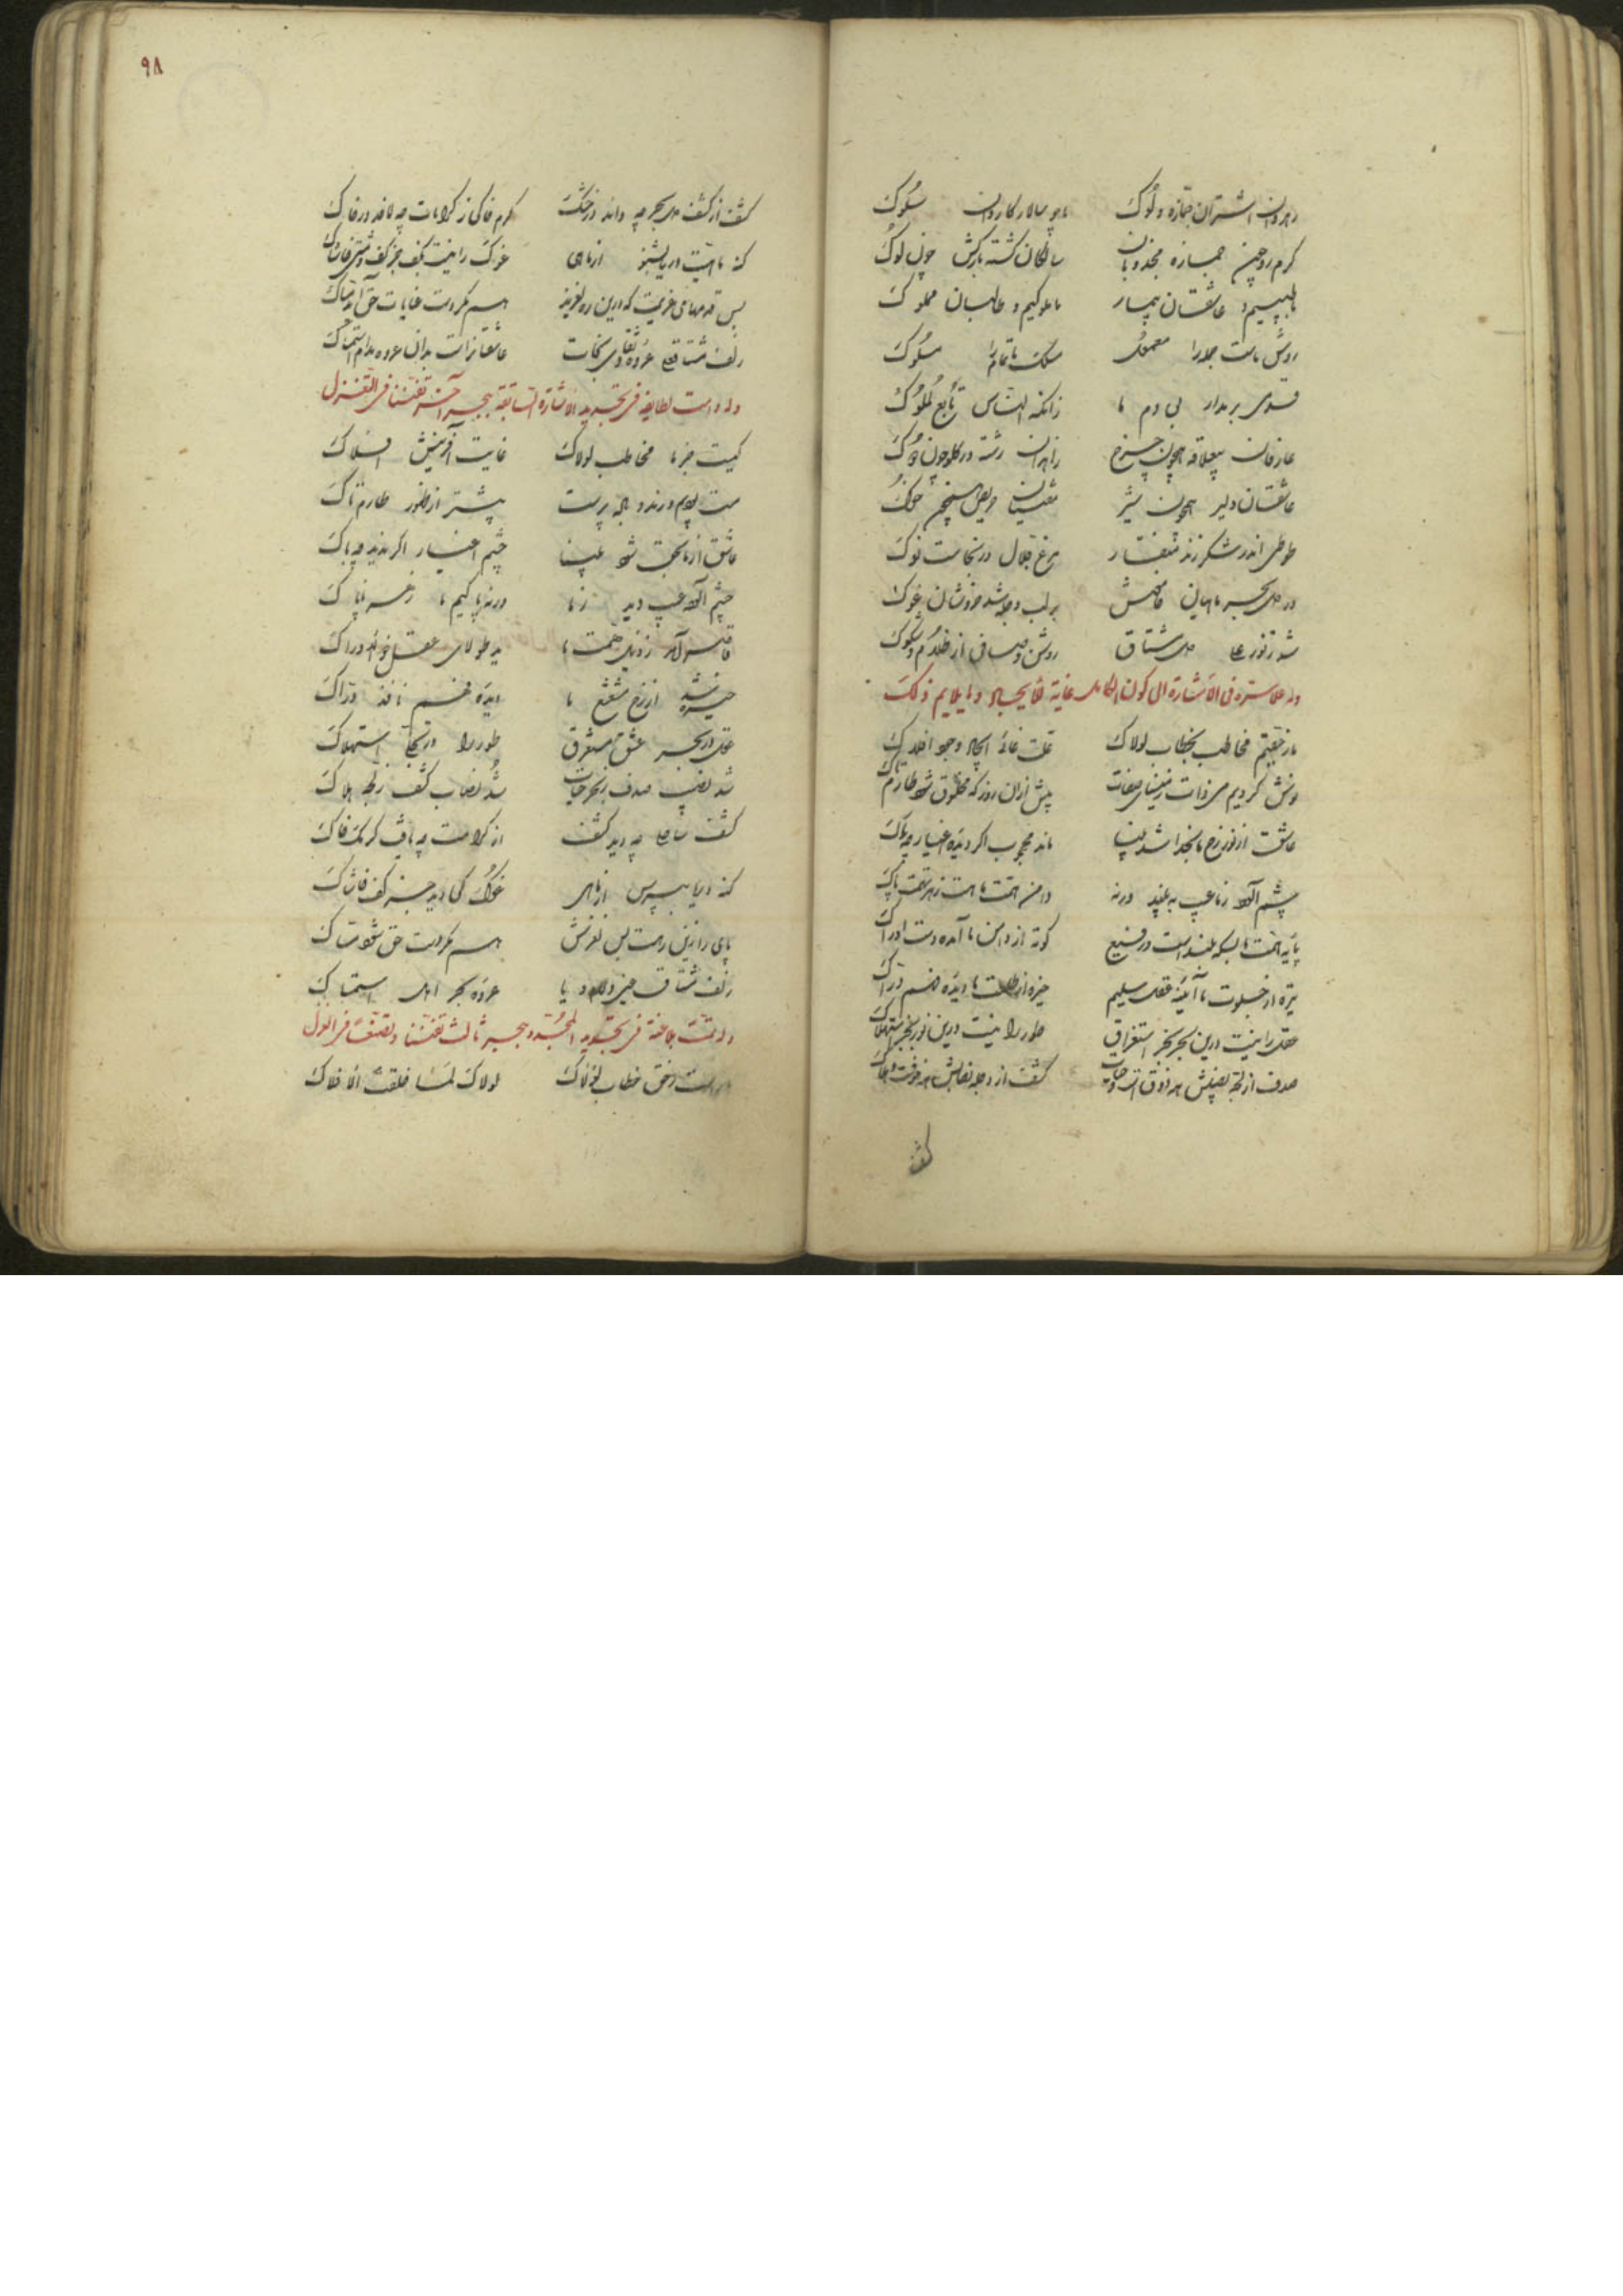 رهروان اشتران جمازه و لوک ما چو سالار کاروان سلوک
گرم رو چون جمازه مجذوبان سالکان گشته بارکش چون لوک
ما طبیبیم و عاشقان بیمار ما ملوکیم و طالبان مملوک
روش ماست جمله را معمول مسلک ما تمام را مسلوک
بی دم ما زانکه الناس تابع لملوک
عارفان همچون چرخ زاهدان رشته در گلو چون دوک
عاشقان دلیر همچون شیر حریص خوک
طوطی اندر شکر زند منقار مرغ در نجاست نوک
در دل بحر ماهیان خامش بر لب خروشان غوک
شد ز نور علی دل مشتاق روشن و صافی از ظلام و سکوک
وله علا سره فی الاشارة الی کون الکامل غایة الایجاد و ما یلایم ذلک
مخاطب بخطاب لولاک علت غائی ایجاد وجود افلاک
نوش کردیم می ذات ز مینای صفات پیش ازان روز که مخلوق شود طارم تاک
عاشق از نور رخ ما بخدا شد بینا ماند محجوب اگر دیده اغیار چه باک
چشم آلوده ز ما عیب به بیند ورنه دامن همت ما هست ز هر تهمت پاک
پایه همت ما بسکه بلند است و رفیع کوته از دامن ما آمده دست ادراک
تیره از جلوت ما آینه عقل سلیم خیره از طلعت ما دیده فهم دراک
عقل را نیست درین بحر بجز استغراق طور را نیست درین نور بجز استهلاک
صدف از لجه نصیبش همه ذوق است و حیات کشف از دجله نصابش همه موت و هلاک
کشف
۹۸
کشف از کشف دل بحر چه داند در خشک کرم خاکی ز کرامات چه لافد در خاک
کنه ماهیت دریا بشنو از ماهی غوک را نیست بکف جز کف و مشتی خاشاک
بس قدمهای عزیمت که درین ره لغزید هم مگر دست عنایات حق
زلف مشتاق علی عروه وثقای نجات عاشقانراست بدان عروه مدام استمساک
وله دامت لطایفه فی تجدید الاشارة السابقة ببحر آخر تفننا فی التغزل
کیست جز ما مخاطب لولاک غایت آفرینش افلاک
مست بودیم و رند و باده پرست پیشتر از ظهور طارم تاک
عاشق از ما بحق شود بینا چشم اغیار اگر ندید چه باک
چشم آلوده عیب دید ز ما ورنه پاکیم ما ز هر ناپاک
قاصر آمد ز ذیل همت ما ید طولای عقل ادراک
خیره شد از رخ مشعشع ما دیده فهم نافذ دراک
عقل در بحر عشق مستغرق طور را در تجلی استهلاک
شد نصیب صدف ز بحر حیات شد نصاب کشف ز لجه هلاک
کشف ساحل چه دید کشف از کرامت چه یافت کرمک خاک
کنه دریا بپرس از ماهی غوک کی دید جز کف خاشاک
پای را زین رهست بس لغزش هم مگر دست حق شود
زلف مشتاق عروه بحر استمساک
وله تمت بلاغته فی تجدید المجدد ببحر ثالث تفننا و تصنعا فی الغزل
ماراست ز حق خطاب لولاک لولاک لما خلقت الافلاک